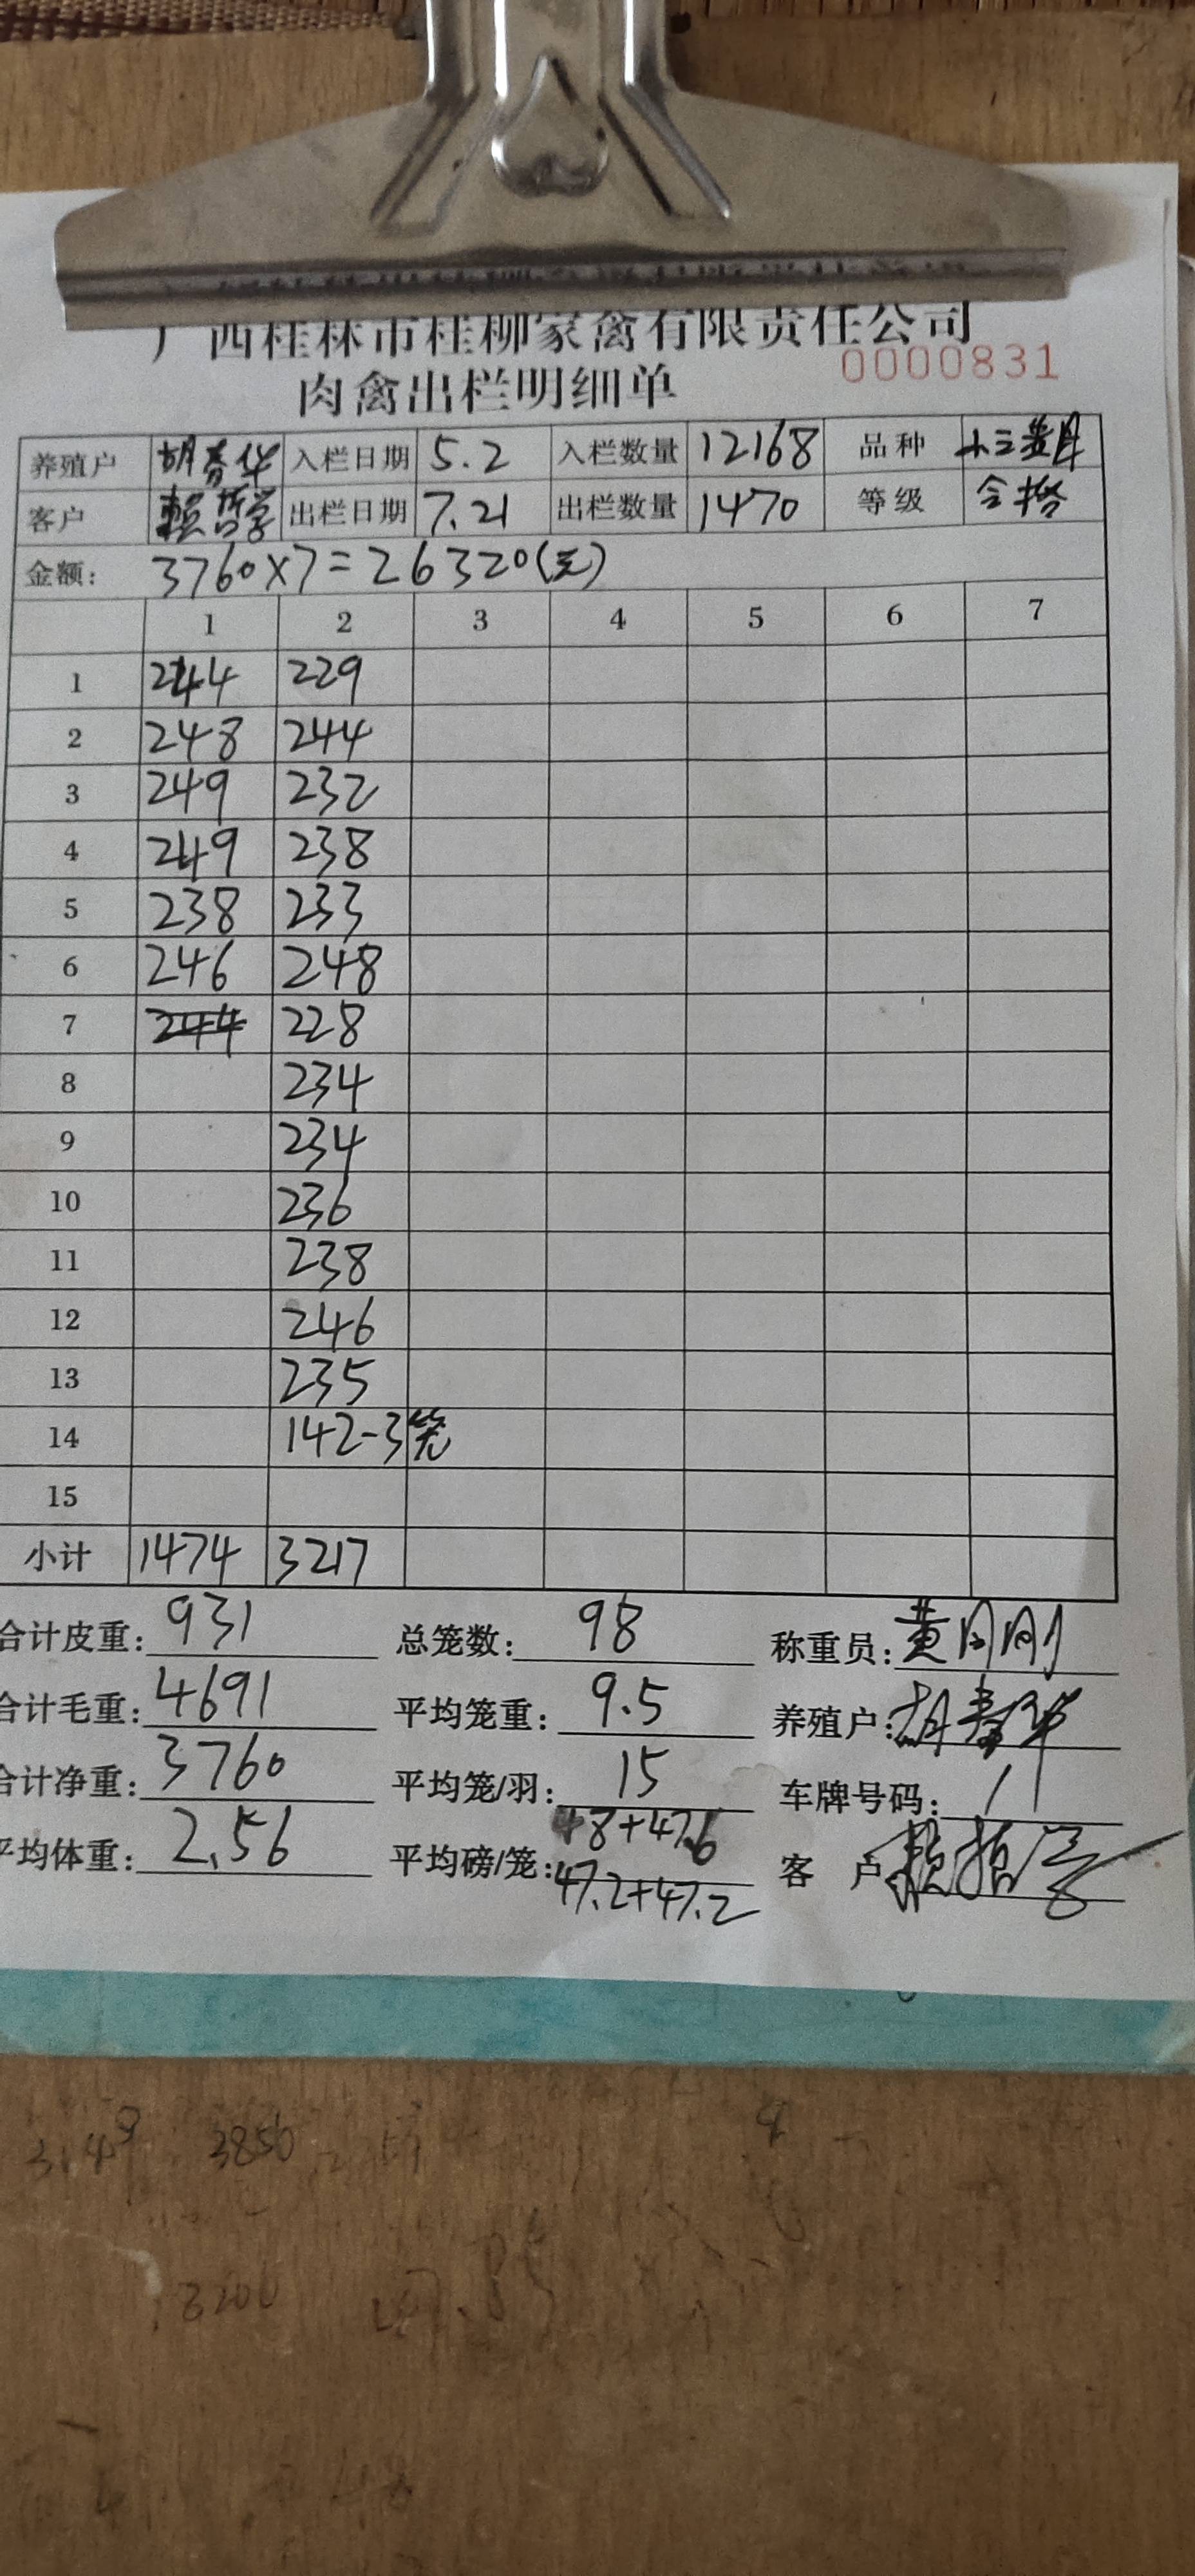 广西桂林市桂柳家禽有限责任公司
肉禽出栏明细单 0000831
养殖户 胡春华 入栏日期 5.2 入栏数量 12168 品种 土三黄月
客户 赖哲学 出栏日期 7.21 出栏数量 1470 等级 合格
金额: 3760×7=26320(元)
1 2 3 4 5 6 7
1 244 229
2 248 244
3 249 232
4 249 238
5 238 233
6 246 248
7 244 228
8 234
9 234
10 236
11 238
12 246
13 235
14 142-3笼
15
小计 1474 3217
合计皮重: 931 总笼数: 98 称重员: 黄月刚
合计毛重: 4691 平均笼重: 9.5 养殖户: 胡春华
合计净重: 3760 平均笼/羽: 15 车牌号码:
平均体重: 2.56 平均磅/笼: 48+47.6 客 户
47.2+47.2
3850